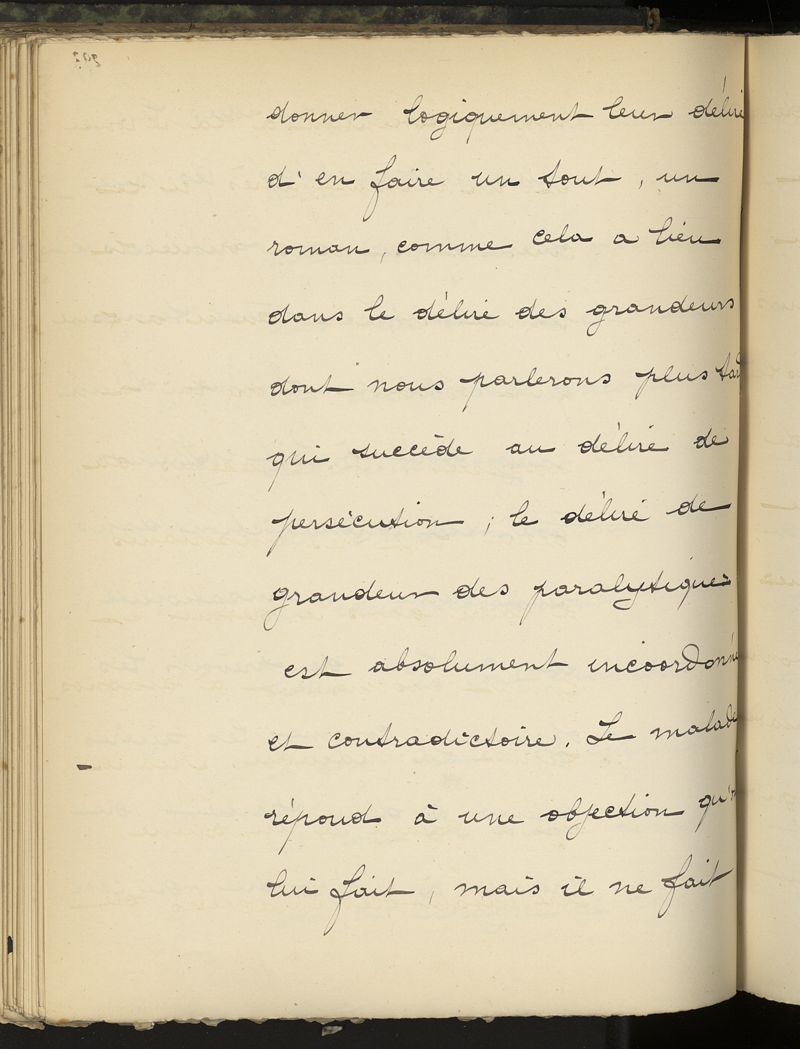 donner logiquement leur délire
d'en faire un tout, un
roman, comme cela a lieu
dans le délire des grandeurs
dont nous parlerons plus tard
qui succède au délire de
persécution ; le délire de
grandeur des paralytiques
est absolument incoordonné
et contradictoire. Le malade
répond à une objection qu'
lui fait, mais il ne fait